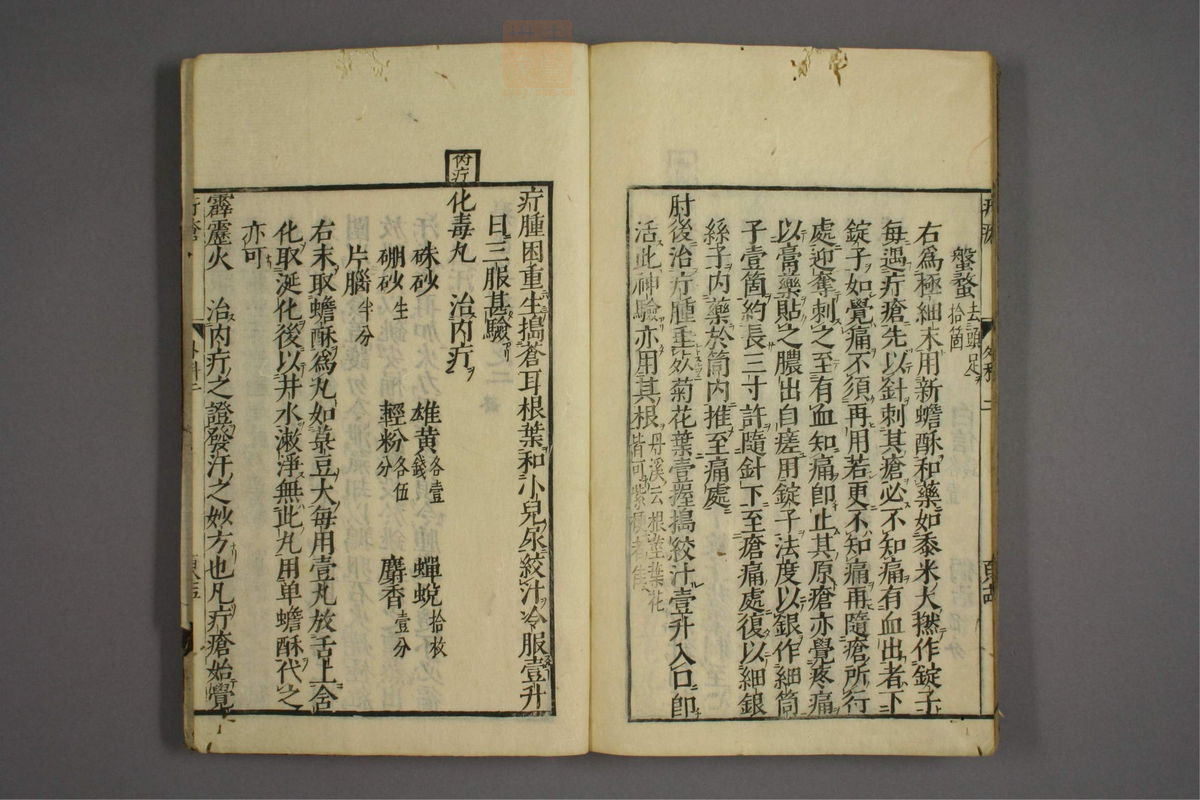 螌蝥去頭足拾箇
右爲極細末用新蟾酥和藥如黍米大撚作錠子
每遇疔瘡先以針刺其瘡必不知痛有血出者下
錠子如覺痛不須再用若更不知痛再隨瘡所行
處迎奪刺之至有血知痛卽止其原瘡亦覺疼痛
以膏藥貼之膿出自瘥用錠子法度以銀作細筒
子壹箇約長三寸許隨針下至瘡痛處復以細銀
絲子內藥於筒内推至痛處
肘後治疔腫垂死菊花葉壹握搗絞汁壹升入口卽
活此神驗亦用其根丹溪云根莖葉花皆可紫梗者佳
疔腫困重生搗蒼耳根葉和小兒尿絞汁冷服壹升
日三服甚驗
内疔
化毒丸 治内疔
硃砂 雄黄各壹錢 蟬蛻拾枚
硼砂生 輕粉各伍分 麝香壹分
片腦半分
右末取蟾酥爲丸如菉豆大每用壹丸放舌上含
化取涎化後以井水漱淨無此丸用单蟾酥代之
亦可
霹靂火 治内疔之證發汗之妙方也凡疔瘡始覺